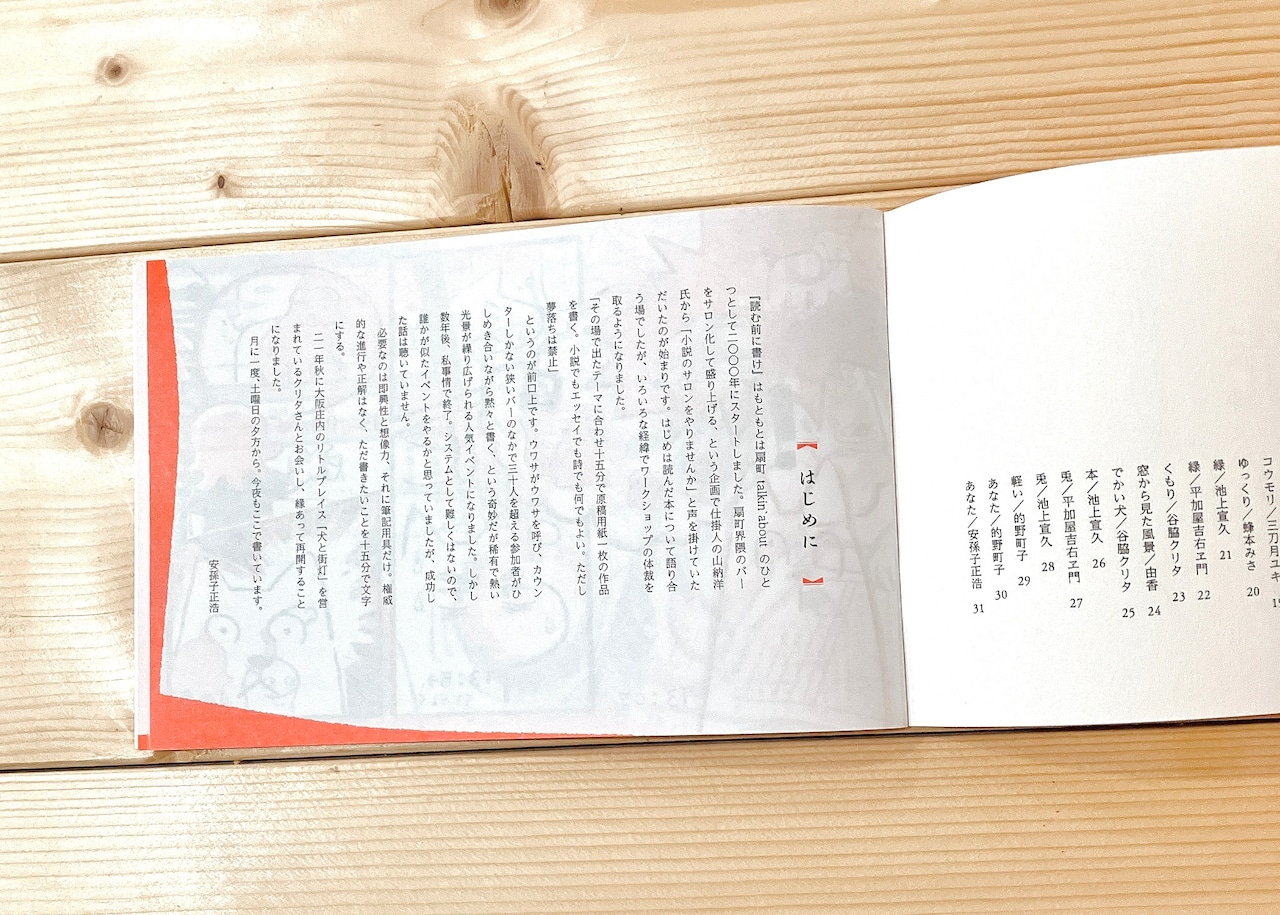 コウモリ／三刀月ユキ
ゆっくり／蜂本みさ 20
緑／池上宣久 21
緑／平加屋吉右ヱ門 22
くもり／谷脇クリタ 23
窓から見た風景／由香 24
でかい犬／谷脇クリタ 25
本／池上宣久 26
兎／平加屋吉右ヱ門 27
兎／池上宣久 28
軽い／的野町子 29
あなた／的野町子 30
あなた／安孫子正浩 31
【はじめに】
『読む前に書け』はもともとは扇町 talkin'about のひと
つとして二〇〇〇年にスタートしました。扇町界隈のバー
をサロン化して盛り上げる、という企画で仕掛人の山納洋
氏から「小説のサロンをやりませんか」と声を掛けていた
だいたのが始まりです。はじめは読んだ本について語り合
う場でしたが、いろいろな経緯でワークショップの体裁を
取るようになりました。
「その場で出たテーマに合わせ十五分で原稿用紙一枚の作品
を書く。小説でもエッセイでも詩でも何でもよい。ただし
夢落ちは禁止」
というのが前口上です。ウワサがウワサを呼び、カウン
ターしかない狭いバーのなかで三十人を超える参加者がひ
しめき合いながら黙々と書く、という奇妙だが稀有で熱い
光景が繰り広げられる人気イベントになりました。しかし
数年後、私事情で終了。システムとして難しくはないので、
誰かが似たイベントをやるかと思っていましたが、成功し
た話は聴いていません。
必要なのは即興性と想像力、それに筆記用具だけ。権威
的な進行や正解はなく、ただ書きたいことを十五分で文字
にする。
二一年秋に大阪庄内のリトルプレイス「犬と街灯」を営
まれているクリタさんとお会いし、縁あって再開すること
になりました。
月に一度、土曜日の夕方から。今夜もここで書いています。
安孫子正浩